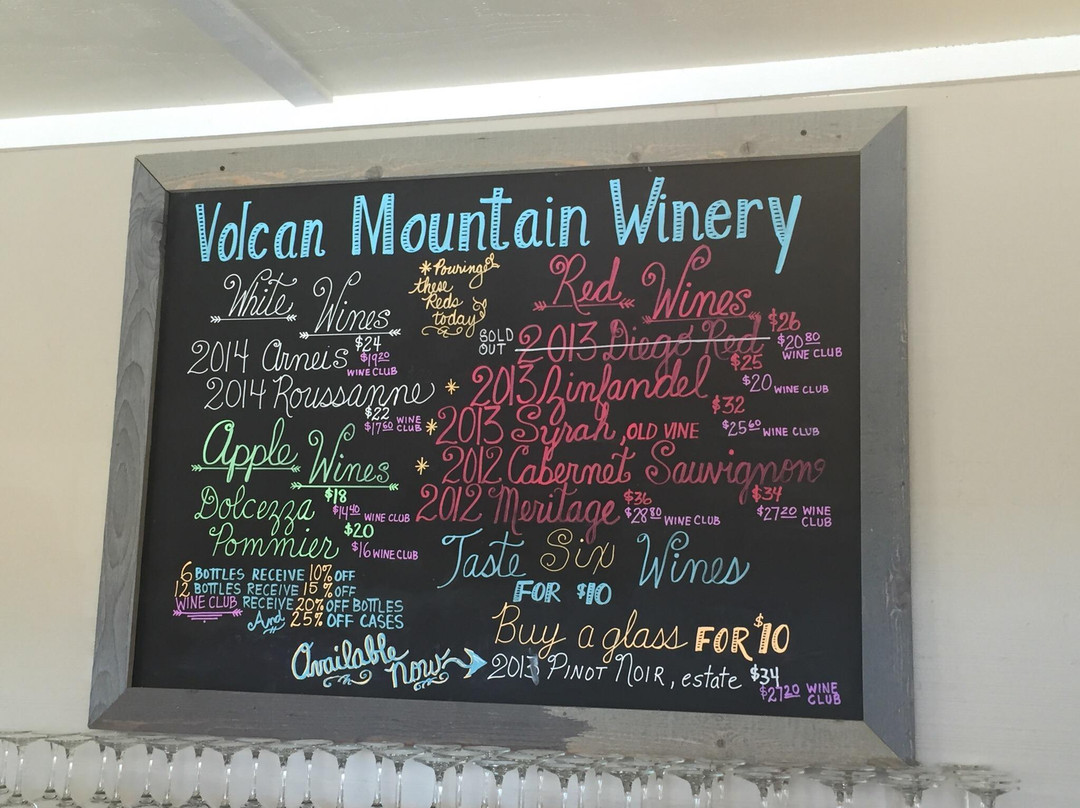 Volcan Mountain Winery
White Wines
2014 Arneis $24
$19.20 WINE CLUB
2014 Roussanne
$22
$17.60 WINE CLUB
Apple Wines
Dolcezza $18
$14.40 WINE CLUB
Pommier $20
$16 WINE CLUB
6 BOTTLES RECEIVE 10% OFF
12 BOTTLES RECEIVE 15% OFF
WINE CLUB RECEIVE 20% OFF BOTTLES
And 25% OFF CASES
* Pouring
these
Reds
today!
Red Wines
SOLD OUT 2013 Diego Red $26
$20.80 WINE CLUB
* 2013 Zinfandel $25
$20 WINE CLUB
* 2013 Syrah, OLD VINE $32
$25.60 WINE CLUB
* 2012 Cabernet Sauvignon
$34
$27.20 WINE CLUB
2012 Meritage $36
$28.80 WINE CLUB
Taste Six Wines
FOR $10
Buy a glass FOR $10
Available Now 2013 PINOT NOIR, estate $34
$27.20 WINE CLUB